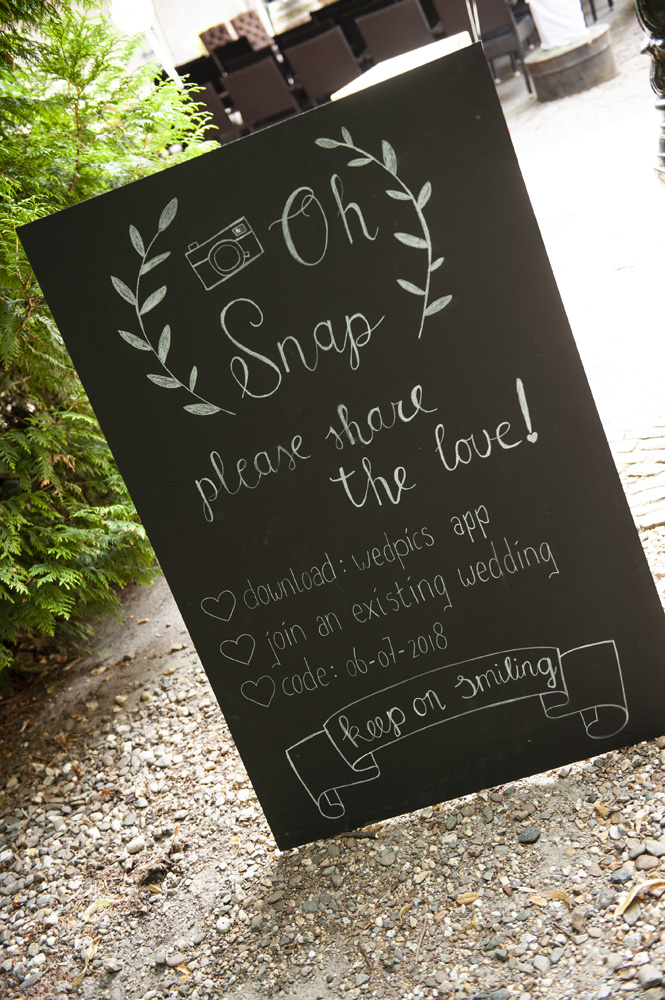 Oh
Snap
please share
the love!
download: wedpics app
join an existing wedding
code: 06-07-2018
keep on smiling